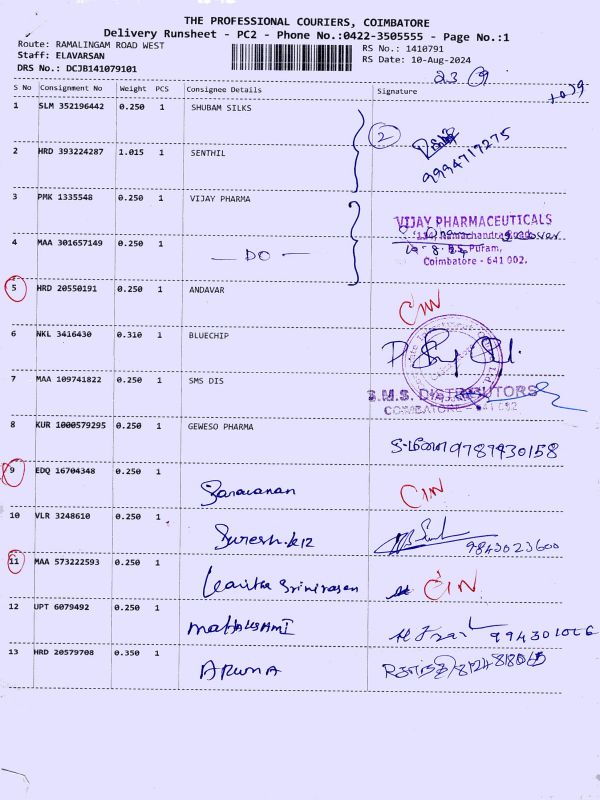 THE PROFESSIONAL COURIERS, COIMBATORE
Delivery Runsheet - PC2 - Phone No.:0422-3505555 - Page No.:1
Route: RAMALINGAM ROAD WEST
RS No.: 1410791
Staff: ELAVARSAN
RS Date: 10-Aug-2024
DRS No.: DCJB141079101
23
S No Consignment No Weight PCS Consignee Details Signature
1 SLM 352196442 0.250 1 SHUBAM SILKS
2
9994717275
2 HRD 393224287 1.015 1 SENTHIL
3 PMK 1335548 0.250 1 VIJAY PHARMA
VIJAY PHARMACEUTICALS
4 MAA 301657149 0.250 1 - DO -
Puram,
Coimbatore - 641 002.
5 HRD 20550191 0.250 1 ANDAVAR
CIN
6 NKL 3416430 0.310 1 BLUECHIP
7 MAA 109741822 0.250 1 SMS DIS
S.M.S. DISTRIBUTORS
COIMBATORE - 641 002
8 KUR 1000579295 0.250 1 GEWESO PHARMA
9787430158
9 EDQ 16704348 0.250 1 Saravanan CIN
10 VLR 3248610 0.250 1 Suresh.k12 9843023600
11 MAA 573222593 0.250 1 Srinivasan CIN
12 UPT 6079492 0.250 1
13 HRD 20579708 0.350 1 ARUNA